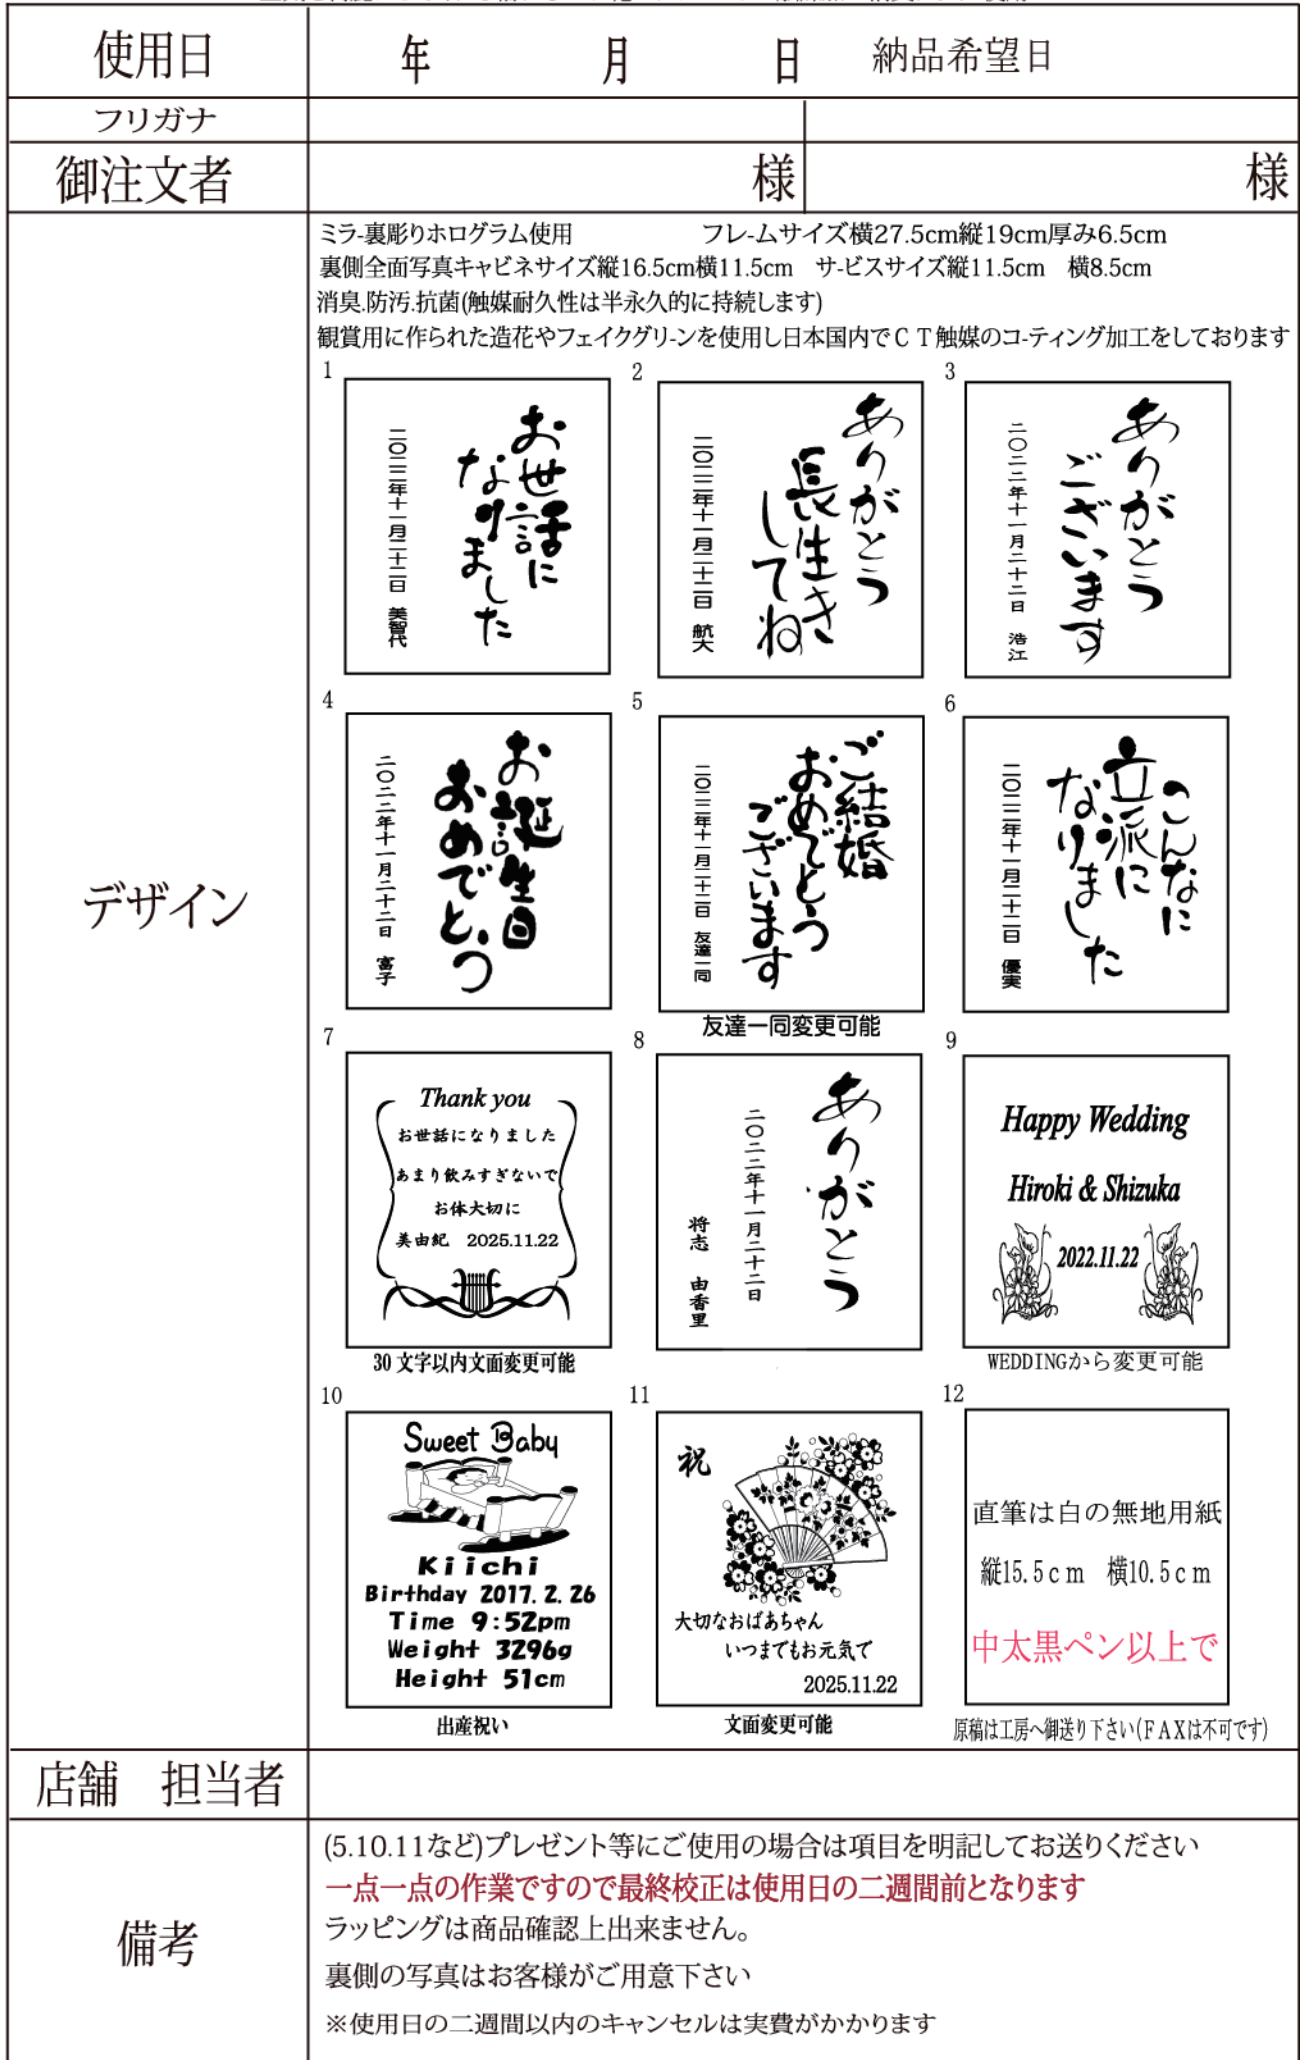 使用日 年 月 日 納品希望日
フリガナ
御注文者 様 様
デザイン
ミラ-裏彫りホログラム使用 フレ-ムサイズ横27.5cm縦19cm厚み6.5cm
裏側全面写真キャビネサイズ縦16.5cm横11.5cm サ-ビスサイズ縦11.5cm 横8.5cm
消臭.防汚.抗菌(触媒耐久性は半永久的に持続します)
観賞用に作られた造花やフェイクグリ-ンを使用し日本国内でＣＴ触媒のコ-ティング加工をしております
1
お世話に
なりました
二〇二二年十一月二十二日 美智代
2
ありがとう
長生き
してね
二〇二二年十一月二十二日 航大
3
ありがとう
ございます
二〇二二年十一月二十二日 浩江
4
お誕生日
おめでとう
二〇二二年十一月二十二日 富子
5
ご結婚
おめでとう
ございます
二〇二二年十一月二十二日 友達一同
友達一同変更可能
6
こんなに
立派に
なりました
二〇二二年十一月二十二日 優実
7
Thank you
お世話になりました
あまり飲みすぎないで
お体大切に
美由紀 2025.11.22
30文字以内文面変更可能
8
ありがとう
二〇二二年十一月二十二日
将志 由香里
9
Happy Wedding
Hiroki & Shizuka
2022.11.22
WEDDINGから変更可能
10
Sweet Baby
Kiichi
Birthday 2017.2.26
Time 9:52pm
Weight 3296g
Height 51cm
出産祝い
11
祝
大切なおばあちゃん
いつまでもお元気で
2025.11.22
文面変更可能
12
直筆は白の無地用紙
縦15.5ｃｍ 横10.5ｃｍ
中太黒ペン以上で
原稿は工房へ御送り下さい(ＦＡＸは不可です)
店舗 担当者
備考
(5.10.11など)プレゼント等にご使用の場合は項目を明記してお送りください
一点一点の作業ですので最終校正は使用日の二週間前となります
ラッピングは商品確認上出来ません。
裏側の写真はお客様がご用意下さい
※使用日の二週間以内のキャンセルは実費がかかります